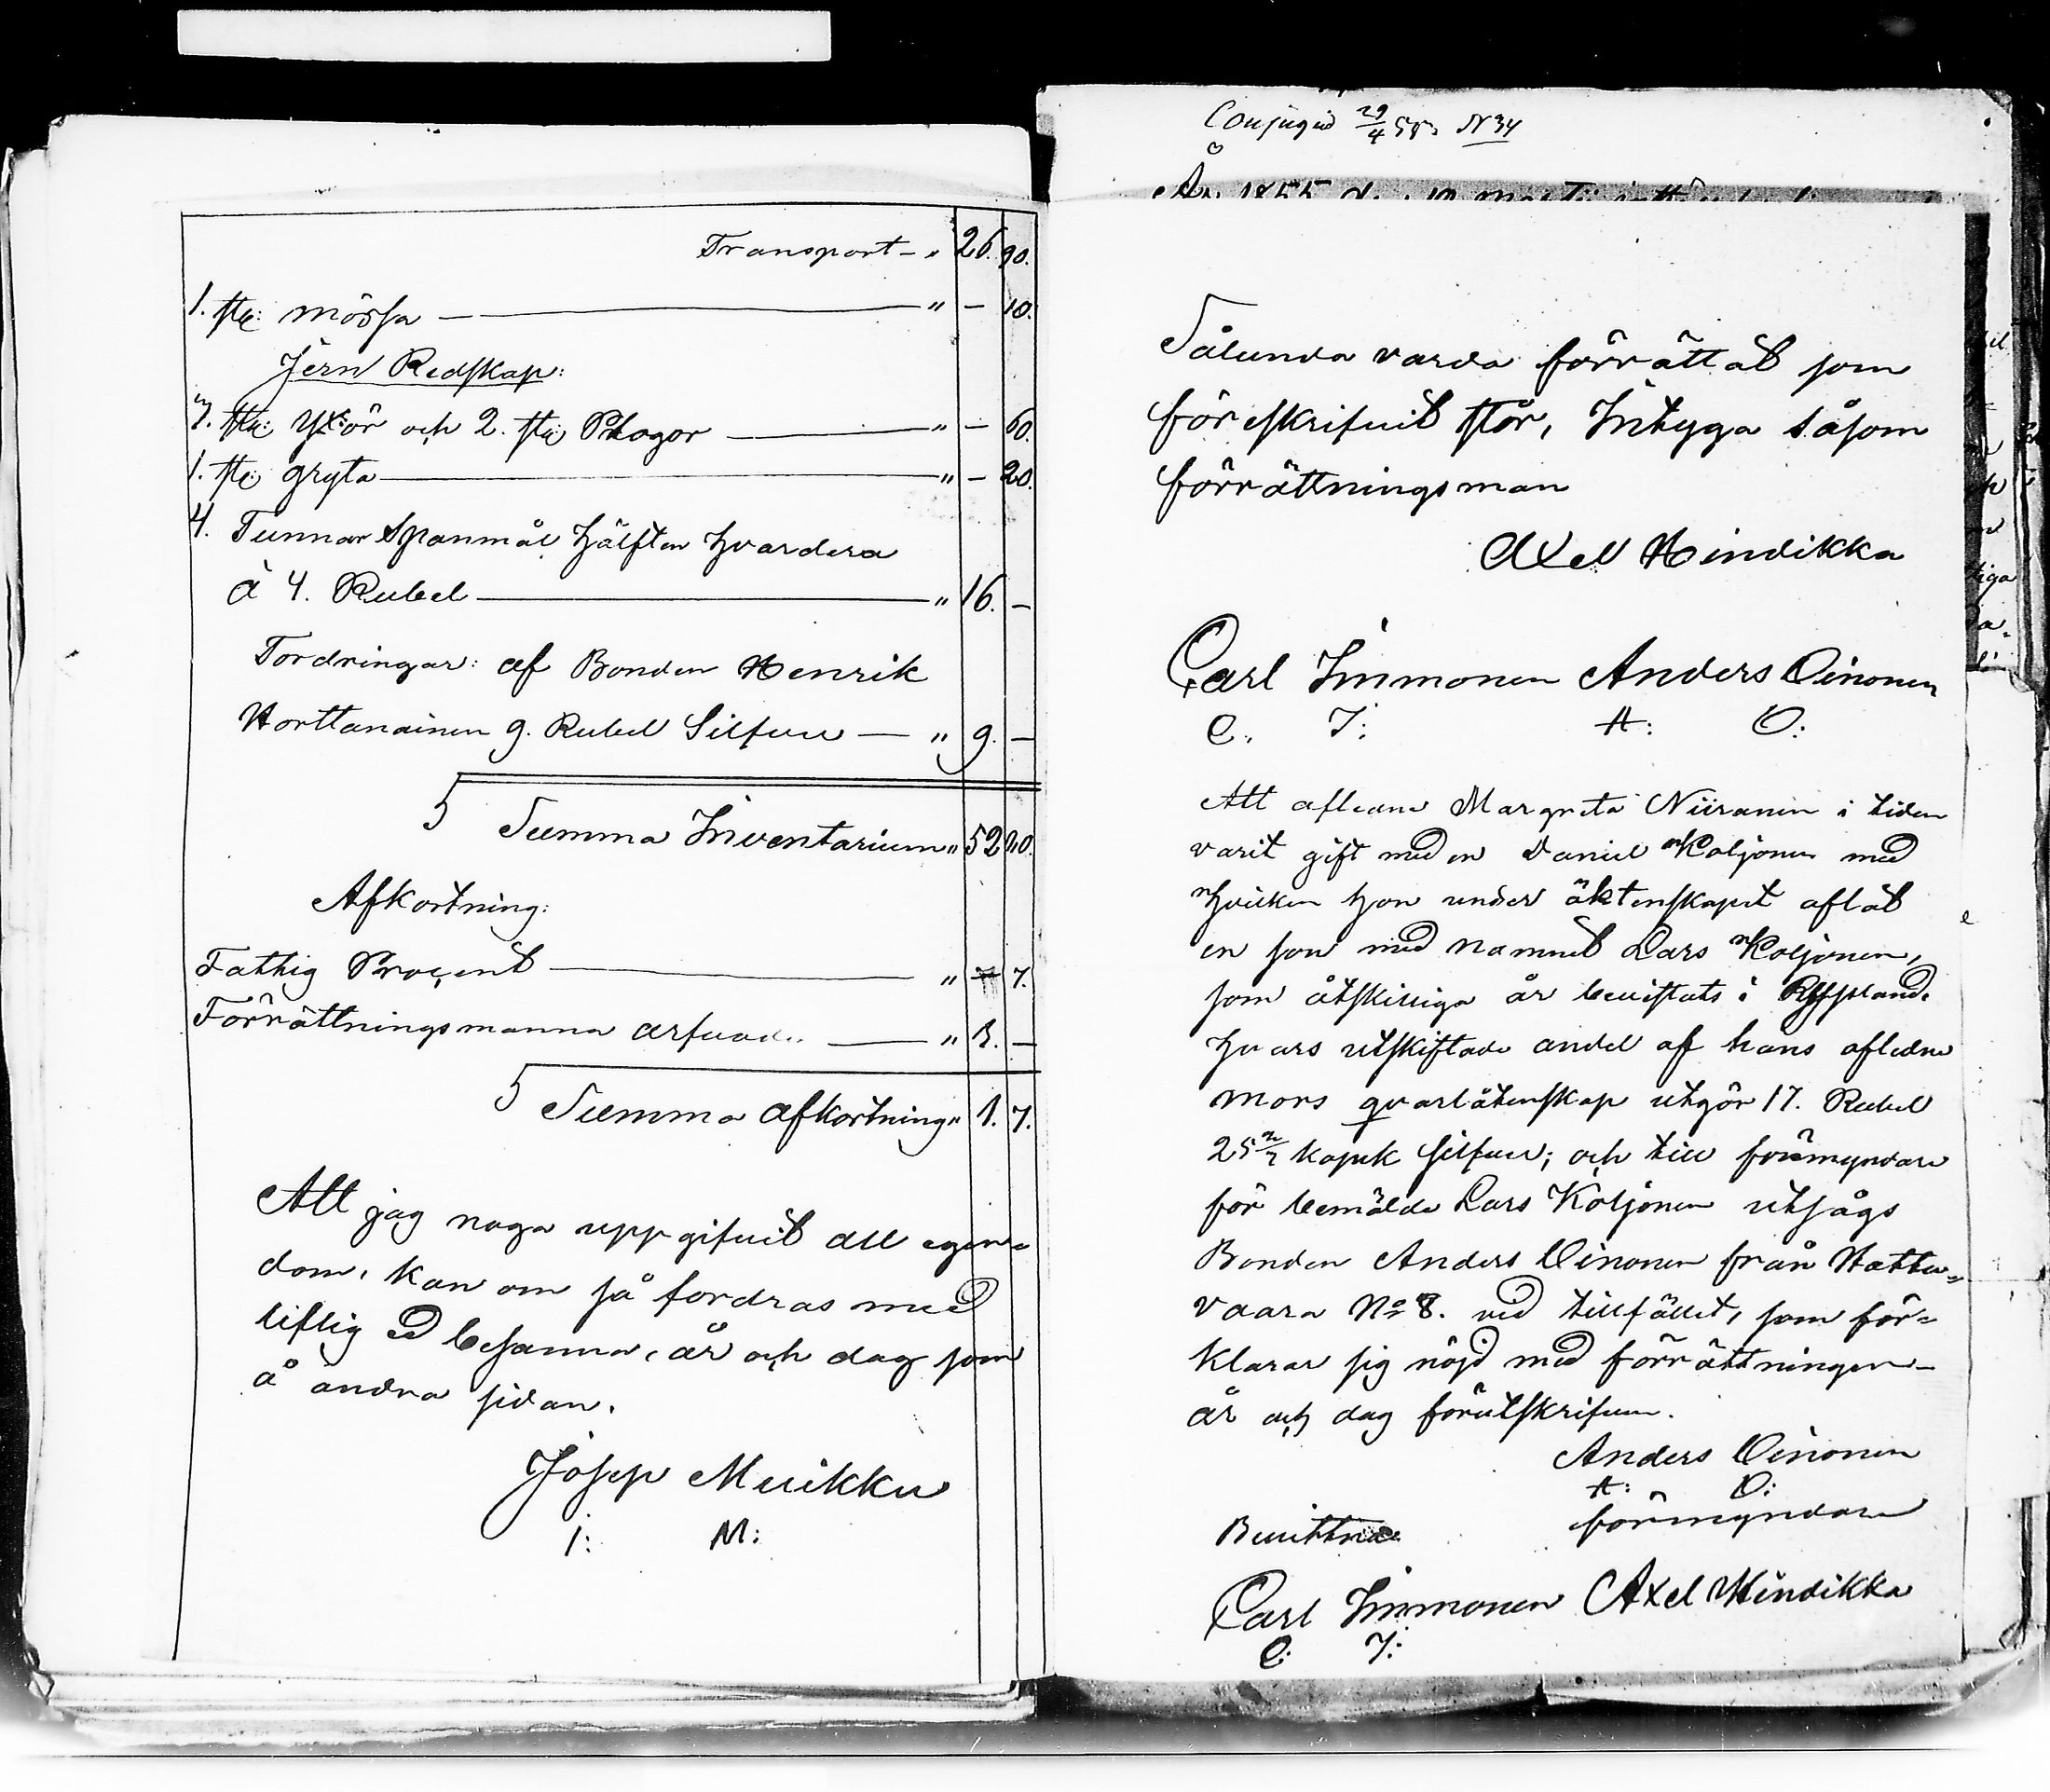 Transport - " 26. 90.
1. stk: mössa — " — 10.
Jern Redskap:
3. stk: Yxor och 2. stk: Plogor — " — 60.
1. stk: gryta — " — 20.
4. Tunnor Spanmål hälften hvardera
à 4. Rubel — " 16. —
Fordringar: af Bonden Henrik
Horttanainen 9. Rubel Silfver — " 9. —
Summa Inventarium " 52 80.
Afkortning:
Fattig Procent — " 7.
Förrättningsmanna arfvode — " 1. —
Summa Afkortning " 1. 7.
Att jag noga uppgifvit all egen=
dom, kan om så fordras med
liflig ed besanna, år och dag som
å andra sidan.
Josep Muikku
I: M:
29/4 N 34
År 1855
Sålunda varda förrättat som
föreskrifvit står, Intyga såsom
förrättningsman
Axel Hindikka
Carl Immonen Anders Oinonen
C. I: A: O:
Att aflidne Margreta Niiranen i tiden
varit gift med en Daniel Koljonen med
hvilken hon under äktenskapet aflat
en son med namnet Lars Koljonen,
som åtskilliga år bevistats i Ryssland.
hvars utskiftade andel af hans aflidne
mors qvarlåtenskap utgör 17. Rubel
25 kopek silfver; och till förmyndare
för bemälde Lars Koljonen utsågs
Bonden Anders Oinonen från Hattu=
vaara No 8. vid tillfället, som för=
klarar sig nöjd med förrättningen -
år och dag förutskrifven.
Anders Oinonen
A: O:
förmyndare
Bevittna
Carl Immonen Axel Hindikka
C: I: